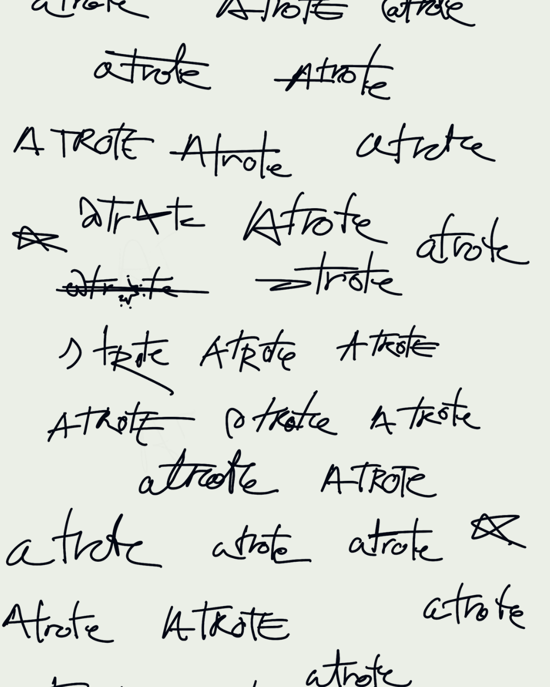 atrote ATROTE atrote
atrote Atrote
A TROTE Atrote atrote
atrAte Atrote atrote
trote
tRote ATROte ATROTE
ATROTE trote ATROTE
atrote A-TROTE
atrote atrote atrote
Atrote ATROTE atrote
atrote